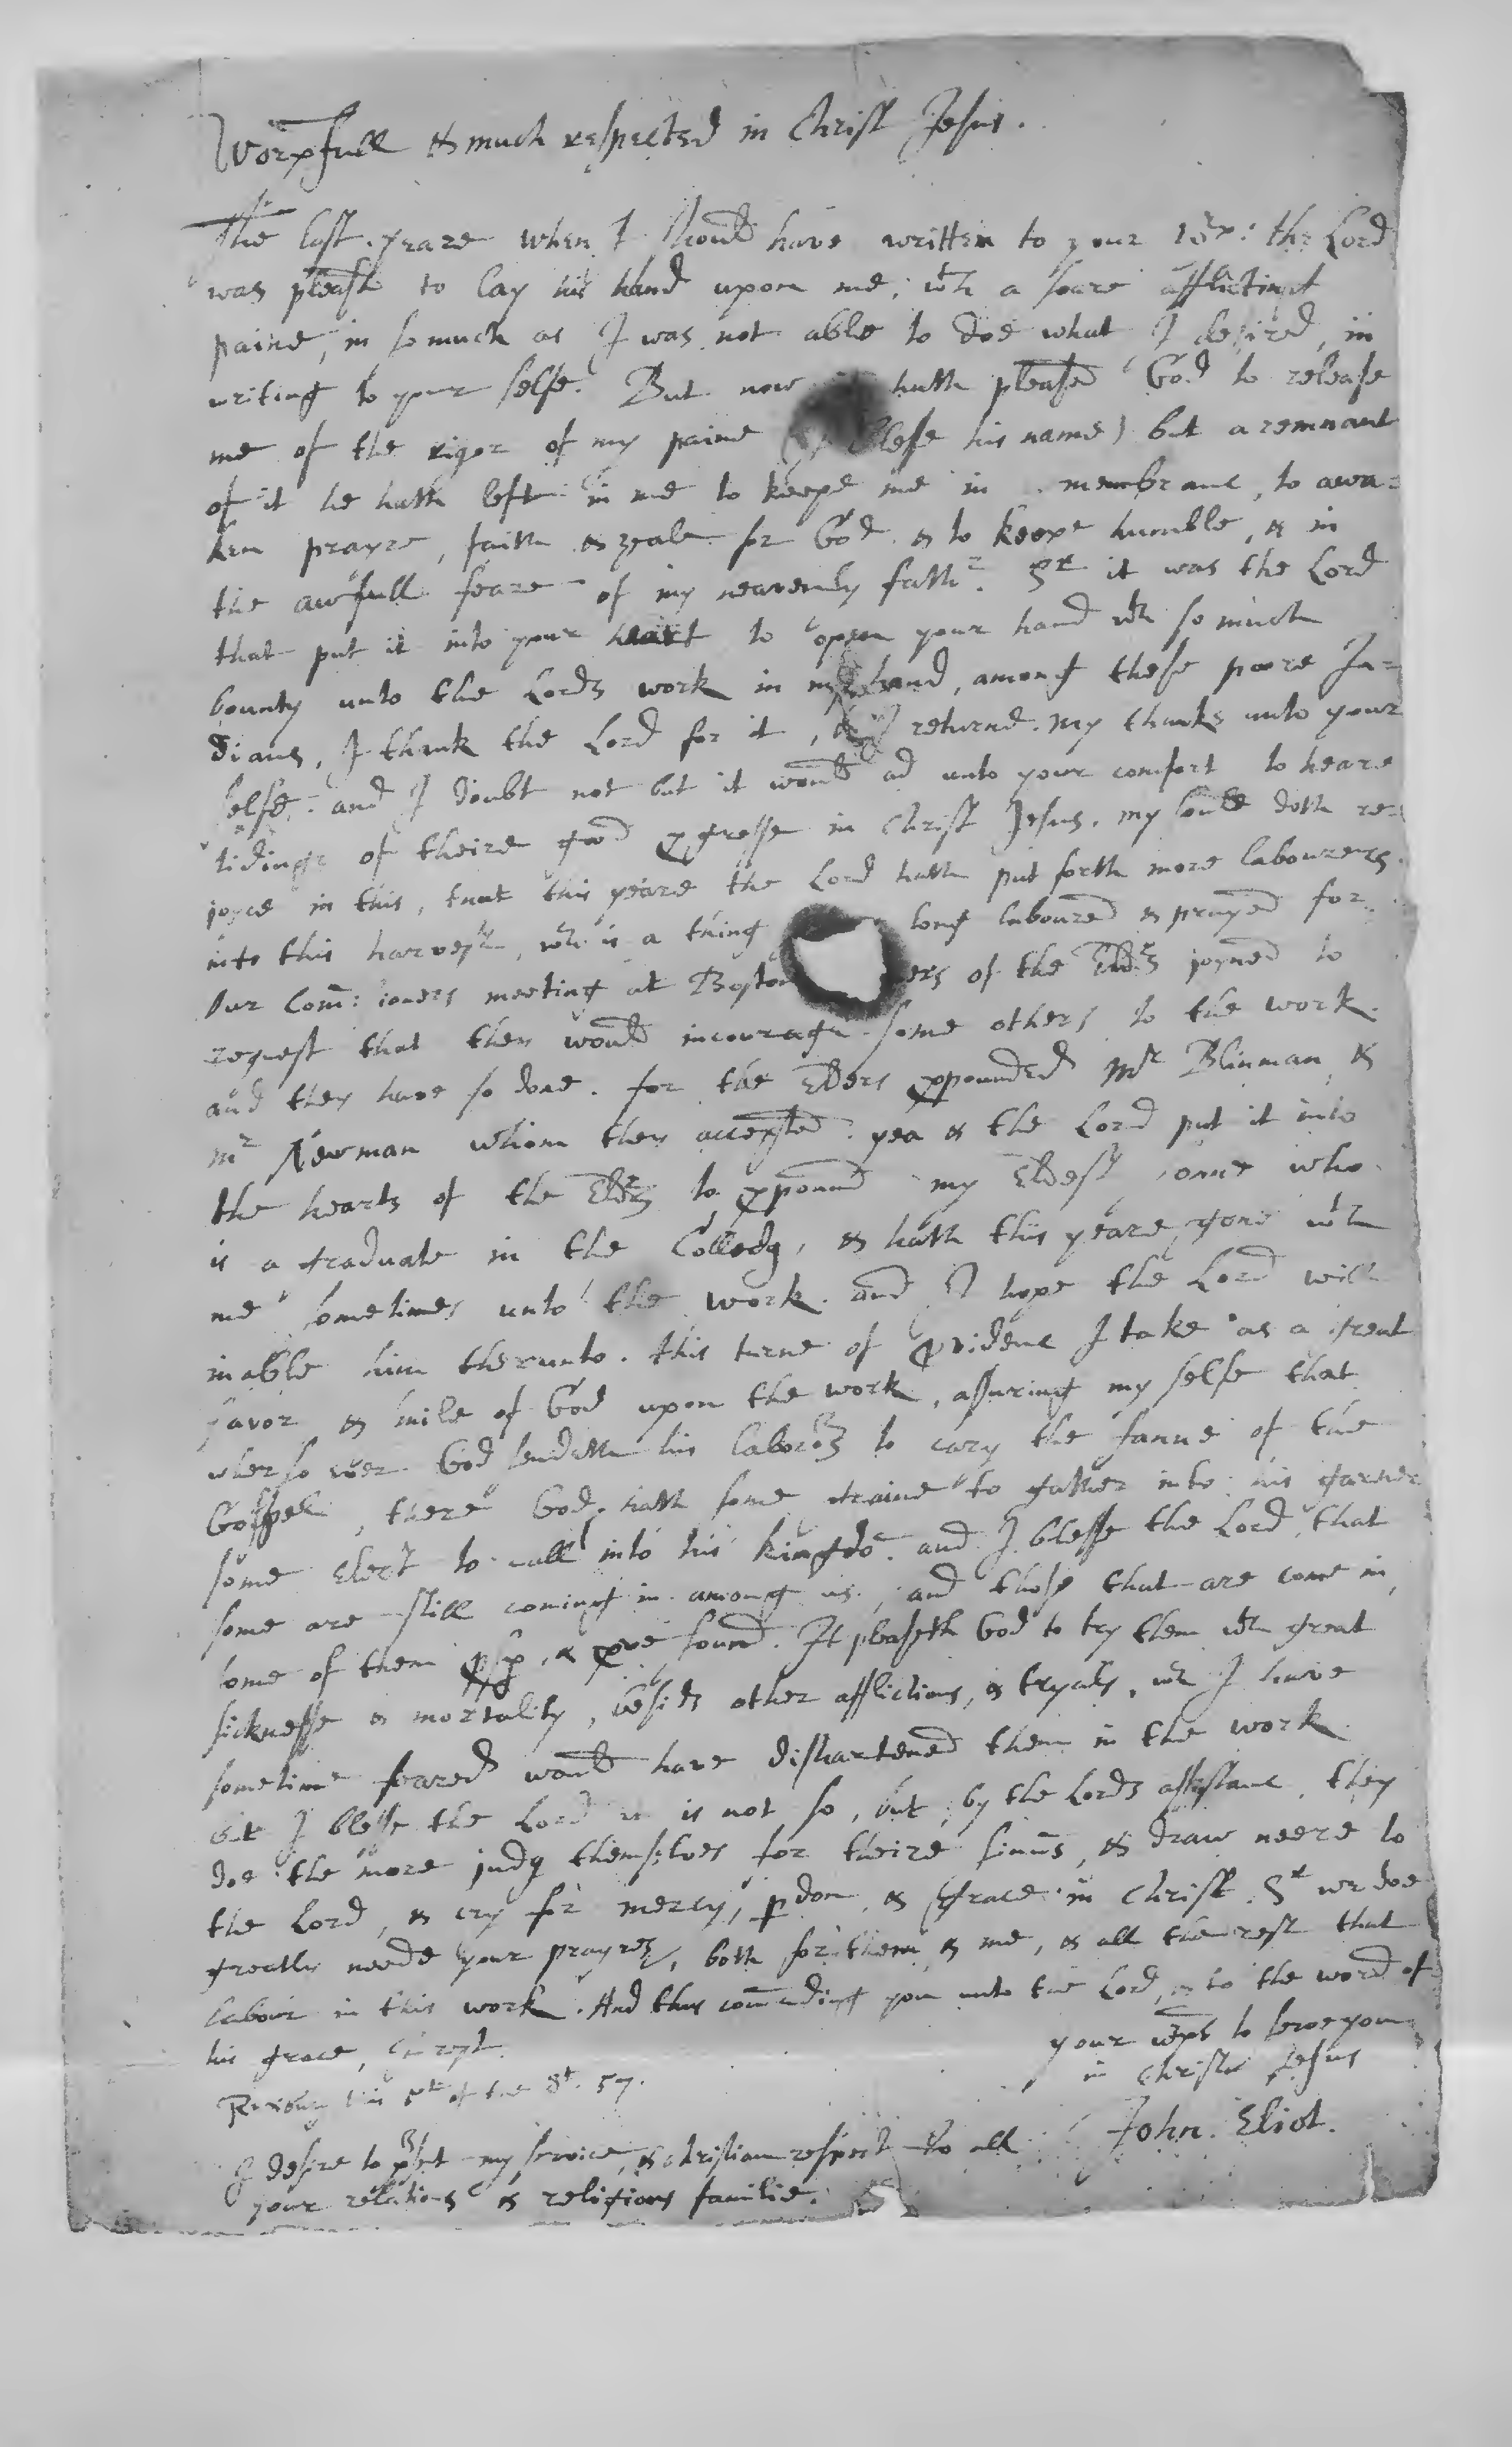 Worpfull & much respected in Christ Jesus.
The last yeare when I should have written to your wp: the Lord
was pleased to lay his hand upon me, wth a soare afflicting
paine, in so much as I was not able to doe what I desired, in
writing to your selfe. But now hath pleased God to release
me of the rigor of my paine blesse his name) but a remnant
of it he hath left in me to keepe me in membranc, to awa-
ken prayre, faith & zeale for God & to keepe humble, & in
the awfull feare of my heavenly fathr. Sr it was the Lord
that put it into your heart to open your hand wth so much
bounty unto the Lords work in my hand, among these poore In-
dians, I thank the Lord for it, & I returne my thanks unto your
selfe. and I doubt not but it would ad unto your comfort to heare
tidings of theire good pgresse in Christ Jesus. my soule doth re-
joyce in this, that this yeare the Lord hath put forth more labourers
into this harvest, wch is a thing long laboured & prayed for.
Our Com:ioners meeting at Boston ers of the Eldrs joyned to
request that they would incourage some others to the work.
and they have so done. for the Elders ppounded Mr Blinman &
mr Newman whom they accepted. yea & the Lord put it into
the hearts of the Eldrs to ppound my Eldest sonne who
is a graduate in the Colledg, & hath this yeare gone wth
me sometimes unto the work. and I hope the Lord will
inable him therunto. this turne of pvidenc I take as a great
favor & smile of God upon the work, assuring my selfe that
whersoever God sendeth his laborrs to cary the fanne of the
Gospel, there God hath some graine to gather into his garner
some elect to call into his kingdō. and I blesse the Lord, that
some are still coming in among us, and those that are come in,
some of them psp, & pve sound. It pleaseth God to try them wth great
sicknesse & mortality, besids other afflictions, & tryals, wch I have
sometime feared would have dishartened them in the work
but I blesse the Lord it is not so, but by the Lords assistanc, they
doe the more judg themselves for theire sinns, & draw neere to
the Lord, & cry for mercy, pdon, & grace in Christ. Sr we doe
greatly neede your prayrs, both for them & me, & all the rest that
labour in this work. And thus com̄ending you unto the Lord, & to the word of
his grace, I rest
your wps to serve you
in Christ Jesus
Roxbury this 5t of the 8t. 57.
John Eliot.
I desire to psnt my service, & christian respect to all
your relations & religious familie.